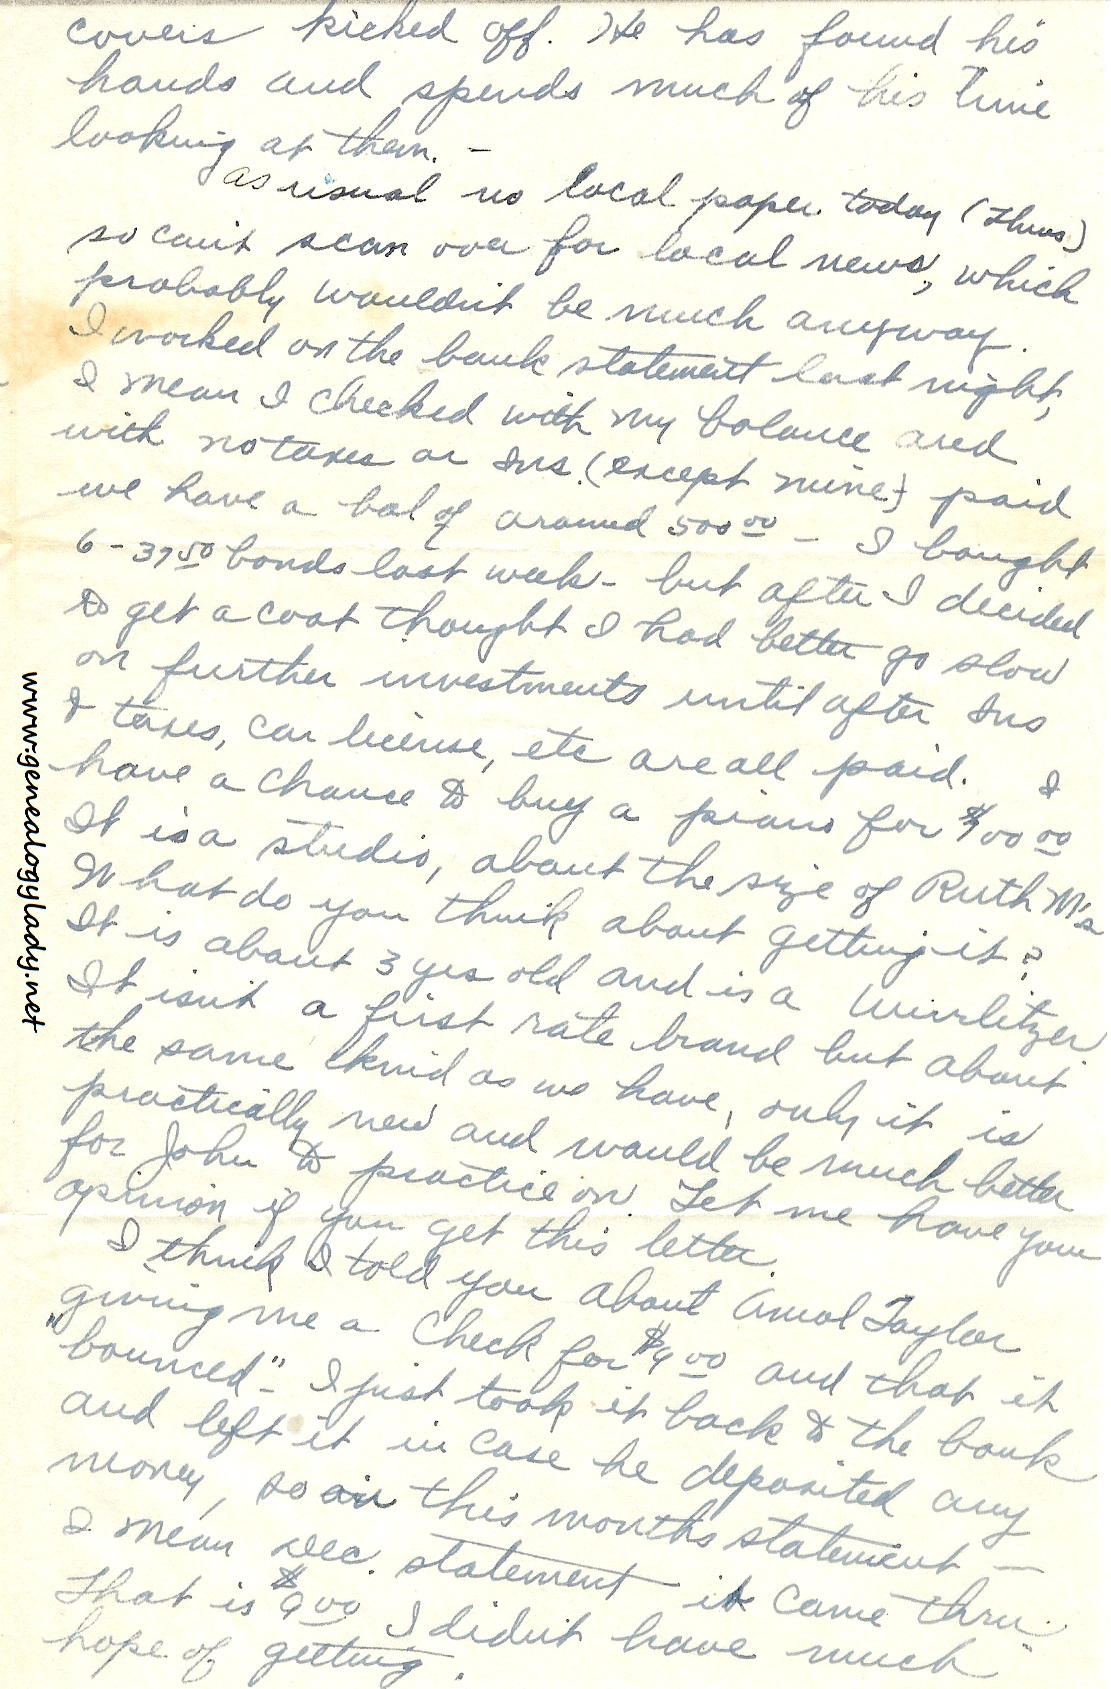 covers kicked off. He has found his
hands and spends much of his time
looking at them. -
as usual no local paper today (Thurs)
so can't scan over for local news, which
probably wouldn't be much anyway.
I worked on the bank statement last night,
I mean I checked with my balance and
with no taxes or Ins. (except mine) paid
we have a bal of around 500 00 - I bought
6 - 37 50 bonds last week - but after I decided
to get a coat thought I had better go slow
on further investments until after Ins
& taxes, car license, etc are all paid. I
have a chance to buy a piano for $ 00 00
It is a studio, about the size of Ruth M's
What do you think about getting it?
It is about 3 yrs old and is a Wurlitzer
It isn't a first rate brand but about
the same kind as we have, only it is
practically new and would be much better
for John to practice on. Let me have your
opinion if you get this letter.
I think I told you about Taylor
giving me a check for $9 00 and that it
"bounced" - I just took it back to the bank
and left it in case he deposited any
money, so on this months statement -
I mean Dec. statement it came thru.
That is $9 00 I didn't have much
hope of getting.
www.genealogylady.net